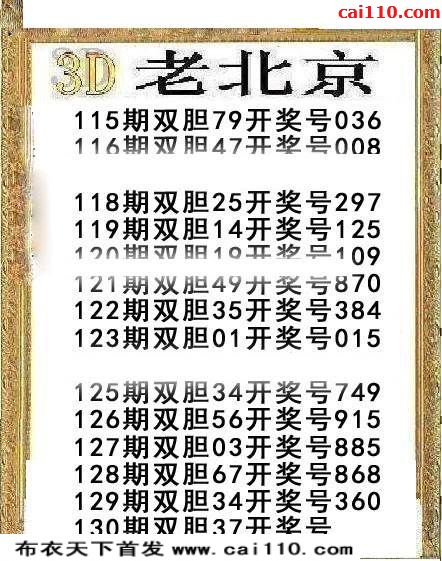 cai110.com
3D 老北京
115期双胆79开奖号036
116期双胆47开奖号008
118期双胆25开奖号297
119期双胆14开奖号125
120期双胆19开奖号109
121期双胆49开奖号870
122期双胆35开奖号384
123期双胆01开奖号015
125期双胆34开奖号749
126期双胆56开奖号915
127期双胆03开奖号885
128期双胆67开奖号868
129期双胆34开奖号360
130期双胆37开奖号
布衣天下首发 www.cai110.com